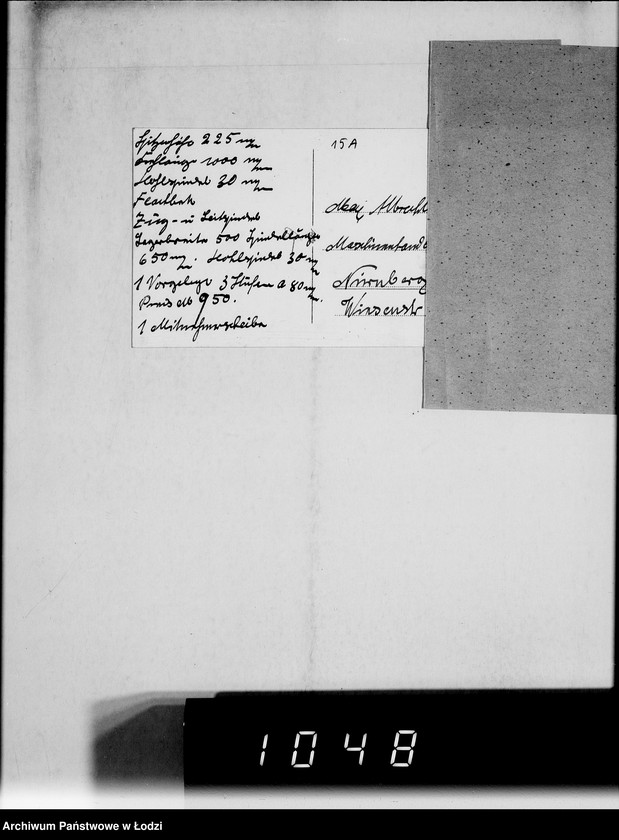 Spitzenhöhe 225 mm
Drehlänge 1000 mm
Hohlspindel 30 mm
Flachbett
Zug- u Leitspindel
Lagerbreite 500 Spindellänge
650 mm. Hohlspindel 30 mm
1 Vorgelege 3 Stufen a 80 mm.
Preis M 950.
1 Mitnehmerscheibe
15A
Max Albrecht
Maschinenhand
Nürnberg
Wiesenstr
1048
Archiwum Państwowe w Łodzi